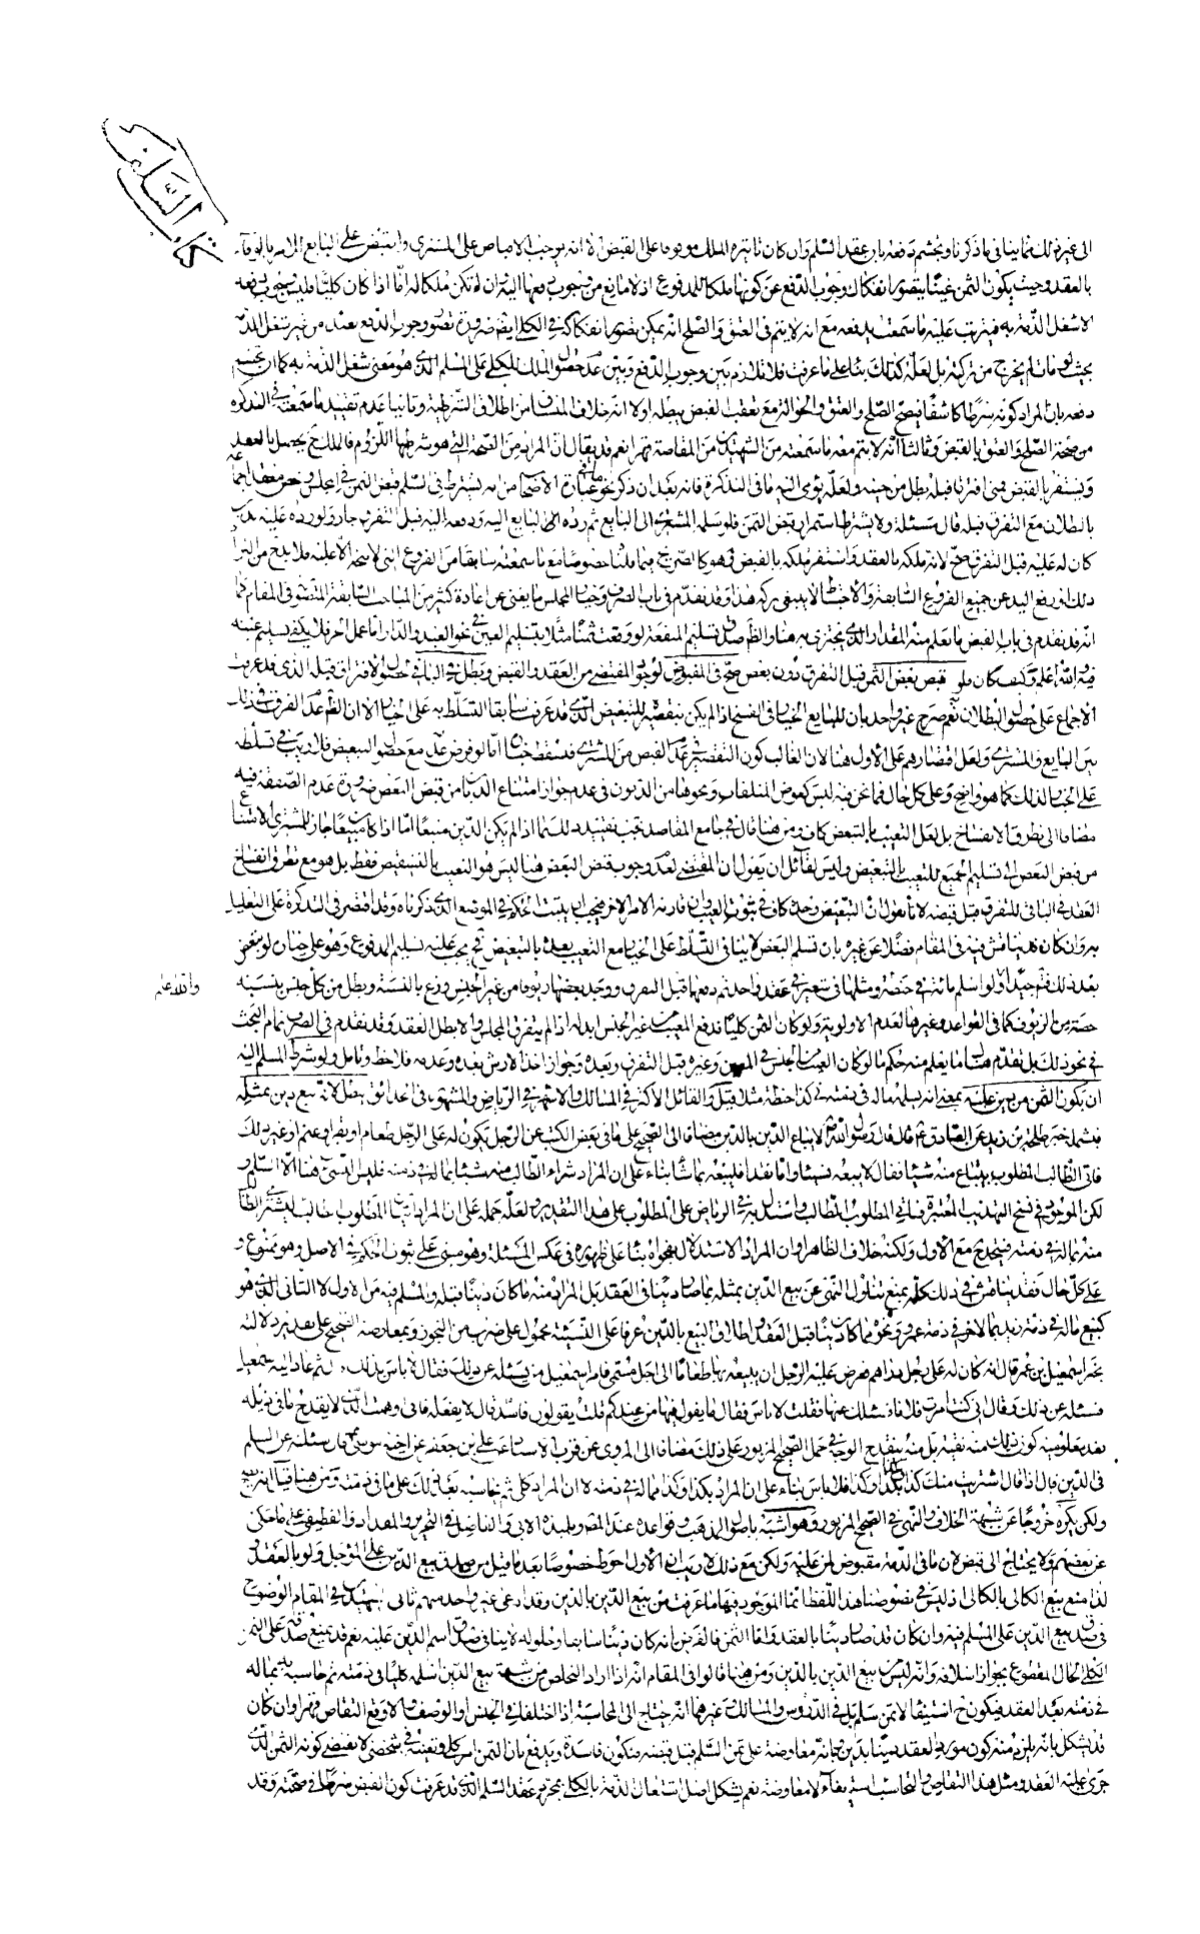 كتاب السلف
الى غير ذلك مما ينافي ما ذكرنا وتجشم دفعه بان عقد السلم وان كان تاثيره الملك موقوفا على القبض الا انه يوجب الاقباض على المشتري والقبض على البايع للامر بالوفاء
بالعقد وحيث يكون الثمن عينا يتصور انفكاك وجوب الدفع عن كونها ملكا للمدفوع اذ لا مانع من وجوب دفعها اليه وان لم تكن ملكا له اما اذا كان كليا فليس وجوب دفعه
الا شغل الذمة به فيترتب عليه ما سمعت يدفعه مع انه لا يتم في العتق والصلح انه يمكن تصور انفكاكه في الكلي ايضا ضرورة تصور وجوب الدفع عنده من غير شغل الذمة
بحيث لو مات لم يخرج من تركته بل لعله كذلك بناء على ما عرفت فلا تلازم بين وجوب الدفع وبين عدم حصول الملك للكلي على المسلم الذي هو معنى شغل الذمة به كما ان تجشم
دفعه بان المراد كونه شرطا كاشفا فيصح الصلح والعتق والحوالة مع تعقب القبض يبطله اولا انه خلاف المنساق من اطلاق الشرطية وثانيا عدم تقييد ما سمعته في التذكرة
من صحة الصلح والعتق بالقبض وثالثا انه لا يتم معه ما سمعته من الشهيد من المقاصة قهرا نعم قد يقال ان المراد من الصحة التي هو شرطها اللزوم فالملك ح يحصل بالعقد
ويستقر بالقبض فمتى افترقا قبله بطل من حينه ولعله يومي اليه ما في التذكرة فانه بعد ان ذكر نحو عبارة الاصحاب من انه يشترط في السلم قبض الثمن في المجلس
بالبطلان مع التفرق قبله قال مسئلة ولا يشترط استمرار قبض الثمن فلو سلمه المشتري الى البايع ثم رده البايع اليه وديعة اليه قبل التفرق جاز ولو رده عليه بدين
كان له عليه قبل التفرق صح لانه ملكه بالعقد واستقر ملكه بالقبض وهو كالصريح فيما قلنا خصوصا مع ما سمعته سابقا من الفروع التي لا تتجه الا عليه فلا بد ح من التزام
ذلك او رفع اليد عن جميع الفروع السابقة والاحتياط لا ينبغي تركه هذا وقد تقدم في باب الصرف وخيار المجلس ما يغني عن اعادة كثير من المباحث السابقة المتصور في المقام كما
انه قد تقدم في باب القبض ما يعلم منه المقدار الذي يجتزي به هنا والظاهر حصول تسليم المنفعة لو وقعت ثمنا مثلا بتسليم العين في نحو العبد والدار اما عمل الحر فلا يكفي تسليم عينه
فيه والله اعلم وكيف كان فلو قبض بعض الثمن قبل التفرق دون بعض صح في المقبوض لوجود المقتضي من العقد والقبض وبطل في الباقي لحصول الافتراق قبله الذي قد عرفت
الاجماع على حصول البطلان به نعم صرح غير واحد بان للبايع الخيار في الفسخ اذا لم يكن بتفريطه للتبعيض الذي قد عرفت سابقا التسلط به على الخيار الا ان الظاهر عدم الفرق في ذلك
بين البايع والمشتري ولعل اقتصارهم على الاول هنا لان الغالب كون التقصير في عدم القبض من المشتري فسقط خياره اما لو فرض عدمه مع حصول التبعيض فلا ريب في تسلطه
على الخيار لذلك كما هو واضح وعلى كل حال فما نحن فيه ليس كعوض المتلفات ونحوها من الديون في عدم جواز امتناع الديان من قبض البعض ضرورة عدم الصفقة فيه
مضافا الى تطرق الانفساخ بل لعل التعيب بالتبعض كاف ومن هنا قال في جامع المقاصد يجب تقييد ذلك بما اذا لم يكن الدين مبيعا اما اذا كان مبيعا جاز للمشتري الامتناع
من قبض البعض الى تسليم الجميع للتعيب بالتبعيض وليس لقائل ان يقول ان المقتضي لعدم وجوب قبض البعض هنا ليس هو التعيب بالتشقيص فقط بل هو مع تطرق انفساخ
العقد في الباقي للتفرق قبل قبضه لانا نقول ان التبعيض وحده كاف في ثبوت العيب وان قارنه الامر الاخر فيجب ان يثبت الحكم في الموضع الذي ذكرناه وقد اقتصر في التذكرة على التعليل
به وان كان قد يناقش فيه في المقام فضلا عن غيره بان تسلم البعض لا ينافي التسلط على الخيار مع التعيب بعده بالتبعيض فح يجب عليه تسليم المدفوع وهو على خياره لو تبعض
بعد ذلك فتأمل جيدا ولو اسلم مائة في حنطة ومثلها في شعير في عقد واحد ثم دفعها قبل التفرق ووجد بعضها زيوفا من غير الجنس وزع بالنسبة وبطل من كل جنس بنسبة
والله اعلم
حصته من الزيوف كما في القواعد وغيرها لعدم الاولوية ولو كان الثمن كليا فدفع المعيب من غير الجنس ابدله اذا لم يتفرق المجلس والا بطل العقد وقد تقدم في الصرف تمام البحث
في نحو ذلك بل تقدم هناك ما يعلم منه حكم ما لو كان العيب من الجنس في المعين وغيره قبل التفرق وبعده وجواز اخذ الارش بعده وعدمه فلاحظ وتأمل ولو شرط المسلم اليه
ان يكون الثمن من دين عليه بمعنى انه يسلم ماله في ذمته في كذا حنطة مثلا قيل والقائل الاكثر في المسالك والاشهر في الرياض والمشهور في الحدائق يبطل لانه بيع دين بمثله
فيشمله خبر طلحة بن زيد عن الصادق ع قال قال رسول الله ص لا يباع الدين بالدين مضافا الى الصحيح على ما في بعض الكتب عن الرجل يكون له على الرجل طعام او بقر او غنم او غير ذلك
فاتى الطالب المطلوب يبتاع منه شيئا فقال لا يبعه نسيئا واما نقدا فليبعه بما شاء بناء على ان المراد شراء الطالب منه شيئا بماله في ذمته فليس النسيء هنا الا السلم و
لكن الموجود في نسخ التهذيب المعتبرة فاتى المطلوب الطالب واستدل به في الرياض على المطلوب على هذا التقدير ولعله حمله على ان المراد اتيان المطلوب طالبا ليشتري الطالب
منه بماله في ذمته فيتحد مع الاول ولكنه خلاف الظاهر او ان المراد الاستدلال بفحواه بناء على ظهوره في عكس المسئلة وهو مبني على ثبوت الحكم في الاصل وهو ممنوع و
على كل حال فقد يناقش في ذلك كله بمنع تناول النهي عن بيع الدين بمثله بما صار دينا في العقد بل المراد منه ما كان دينا قبله والمسلم فيه من الاول لا الثاني الذي هو
كبيع ماله في ذمة زيد بما لاخر في ذمة عمرو ونحو مما كان دينا قبل العقد واطلاق البيع بالدين عرفا على النسيئة محمول على ضرب من التجوز وبمعارضة الصحيح على تقدير دلالته
بخبر اسمعيل بن عمر قال انه كان له على رجل دراهم فعرض عليه الرجل ان يبيعه بها طعاما الى اجل مسمى فامر اسمعيل من يسئله عن ذلك فقال لا باس بذلك ثم عاد اليه اسمعيل
فسئله عن ذلك وقال اني كنت امرت فلانا فسئلك عنها فقلت لا باس فقال ما يقول فيها من عندكم قلت يقولون فاسد قال لا تفعله فاني وهمت الذي لا يقدح ما في ذيله
بعد معلومية كون ذلك منه تقية بل منه ينقدح الوجه في حمل الصحيح المزبور على ذلك مضافا الى المروي عن قرب الاسناد عن علي بن جعفر عن اخيه موسى ع قال سئلته عن السلم
في الدين قال اذا قال اشتريت منك كذا بكذا وكذا فلا باس بناء على ان المراد بكذا وكذا ماله في ذمته لا ان المراد كلي ثم يحاسبه بعد ذلك على ما في ذمته ومن هنا قيل انه يجوز
ولكن يكره خروجا عن شبهة الخلاف والنهي في الصحيح المزبور وهو اشبه باصول المذهب وقواعده عند المصنف وتلميذه الابي والفاضل في التحرير والمقداد والقطيفي على ما حكي
عن بعضهم ولا يحتاج الى قبض لان ما في الذمة مقبوض لمن عليه ولكن مع ذلك لا ريب ان الاول احوط خصوصا بعد ما قيل من صدق بيع الدين على المؤجل ولو بالعقد و
لذا منع بيع الكالي بالكالي اذ ليس في نصوصنا هذا اللفظ انما الموجود فيها ما عرفت من بيع الدين بالدين وقد ادعى غير واحد منهم ثاني الشهيدين في المقام الوضوح
في صدق بيع الدين على المسلم فيه وان كان قد صار دينا بالعقد واما الثمن فالفرض انه كان دينا سابقا وحلوله لا ينافي صدق اسم الدين عليه نعم قد يمنع صدقه على الثمن
الكلي الحال المقطوع بجواز اسلافه وانه ليس بيع الدين بالدين ومن هنا قالوا في المقام انه اذا اراد التخلص من شبهة بيع الدين اسلم كليا في ذمته ثم حاسبه به بماله
في ذمته بعد العقد فيكون ح استيفاء لا ثمن سلم بل في الدروس والمسالك وغيرهما انه يحتاج الى المحاسبة اذا اختلفا في الجنس او الوصف والا وقع التقاص قهرا وان كان
قد يشكل بانه يلزم منه كون مورد العقد دينا بدين وبانه معاوضة على ثمن السلم قبل قبضه فيكون فاسدا ويدفع بان الثمن امر كلي وتعينه في شخص لا يقتضي كونه الثمن الذي
جرى عليه العقد ومثل هذا التقاص والتحاسب استيفاء لا معاوضة نعم يشكل اصل اشتغال الذمة بالكلي بمجرد عقد السلم الذي قد عرفت كون القبض شرطا في صحته وقد